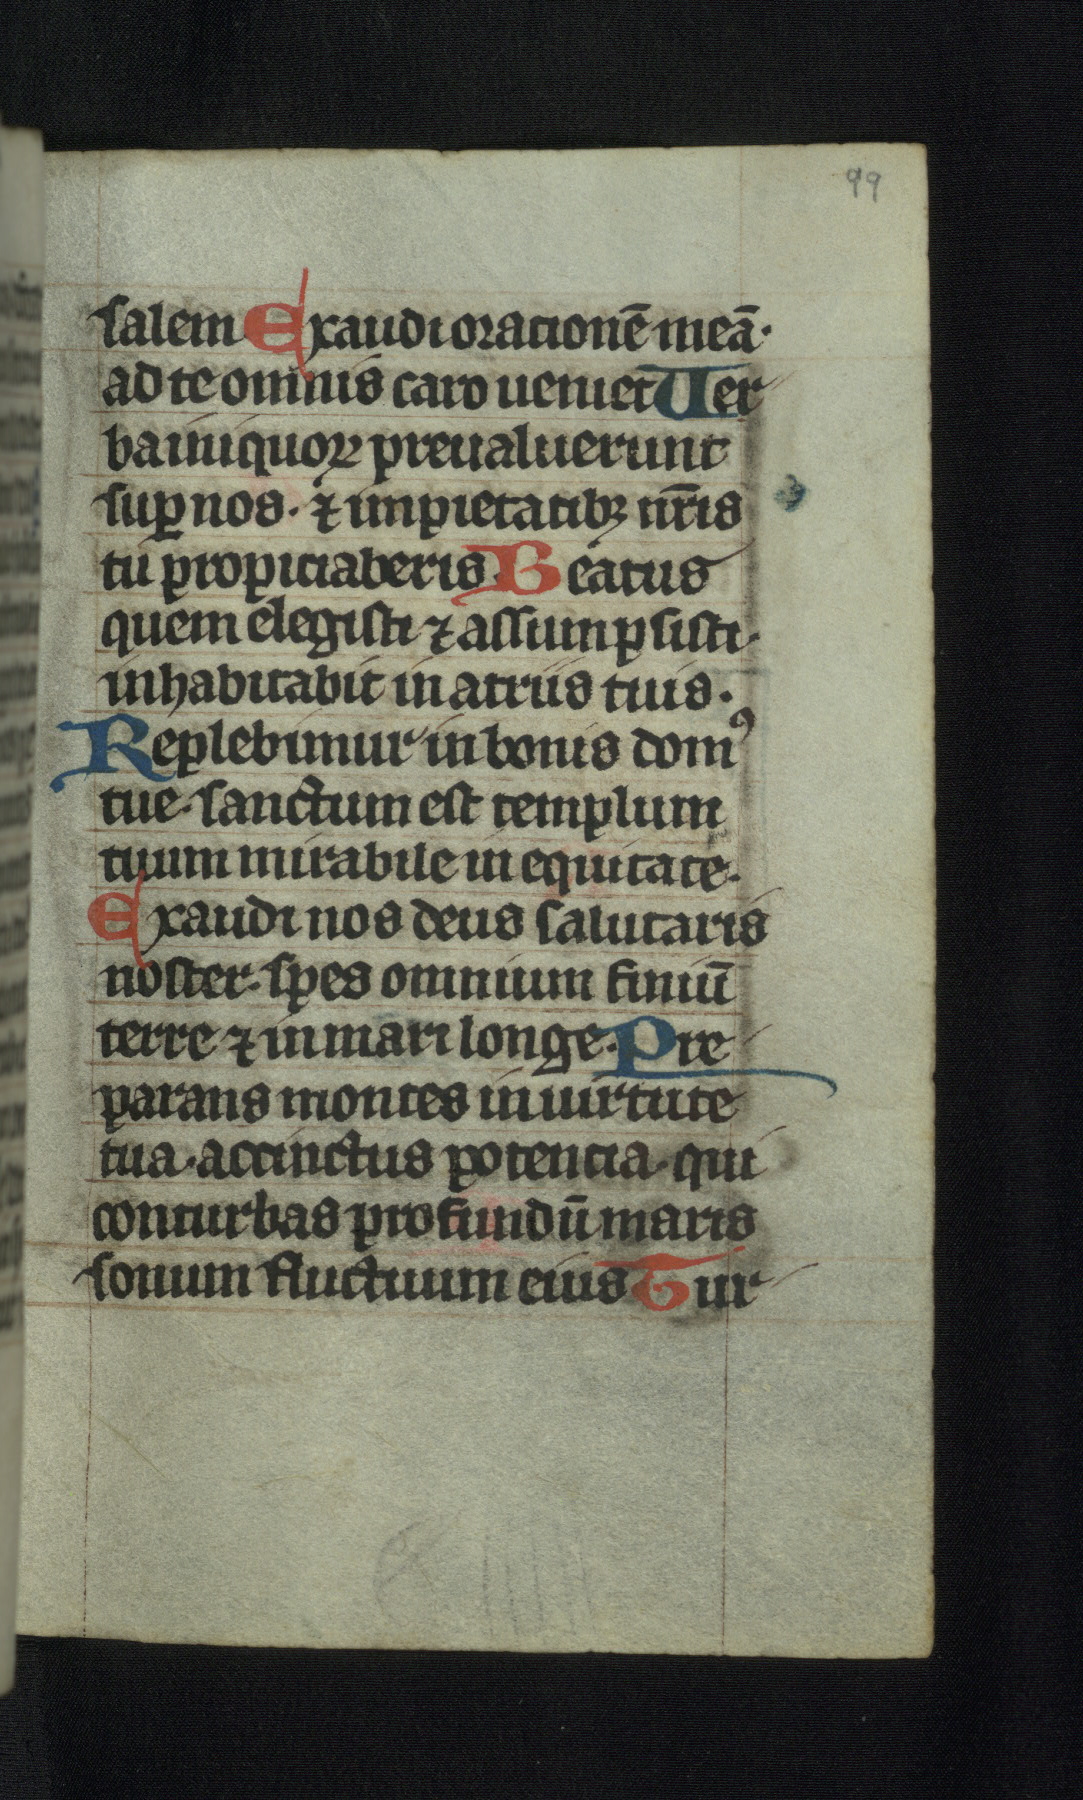 99
salem Exaudi orationē meā·
ad te omnis caro veniet Ver
ba iniquoꝝ prevaluerunt
suꝑ nos· ⁊ impietatibꝫ nr̄is
tu propiciaberis Beatus
quem elegisti ⁊ assumpsisti·
inhabitabit in atriis tuis·
Replebimur in bonis domꝰ
tue· sanctum est templum
tuum mirabile in equitate·
Exaudi nos deus salutaris
noster· spes omnium finiū
terre ⁊ in mari longe· Pre
parans montes in virtute
tua· accinctus potencia· qui
conturbas profundū maris
sonum fluctuum eius Tur